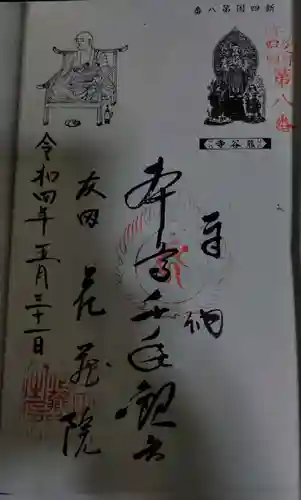 新四国第八番
第八番
熊谷寺
奉拝
本尊千手観音
友田 花蔵院
令和四年五月三十一日